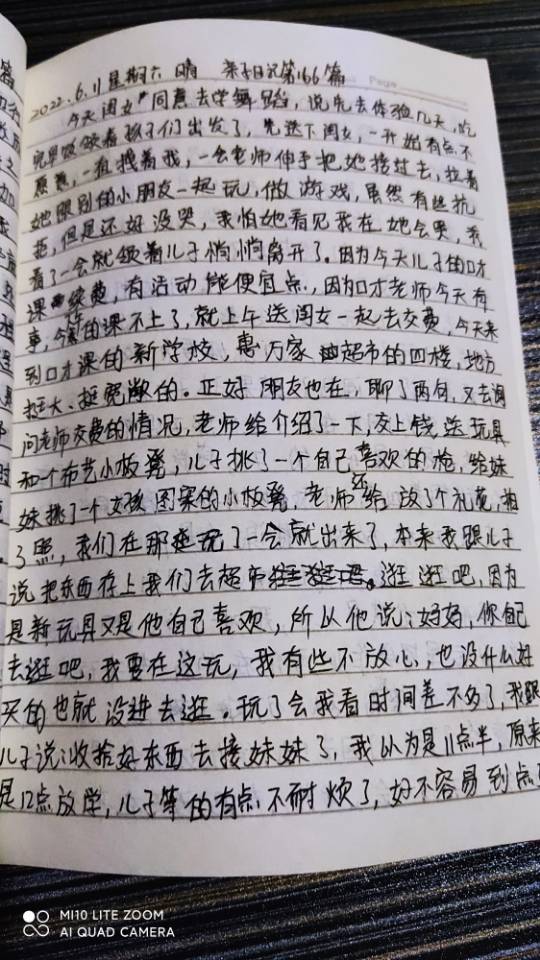 2022.6.11 星期六 晴 亲子日记第166篇
今天闺女同意去学舞蹈，说先去体验几天，吃
完早饭领着孩子们出发了，先送下闺女，一开始有点不
愿意，一直拽着我，一会老师伸手把她接过去，拉着
她跟别的小朋友一起玩，做游戏，虽然有些抗
拒，但是还好没哭，我怕她看见我在她会哭，我
看了一会就领着儿子悄悄离开了。因为今天儿子的口才
课续费，有活动能便宜点，因为口才老师今天有
事，今天的课不上了，就上午送闺女一起去交费，今天来
到口才课的新学校，惠万家超市的四楼，地方
挺大、挺宽敞的。正好朋友也在，聊了两句，又去询
问老师交费的情况，老师给介绍了一下，交上钱，送玩具
和一个布艺小板凳，儿子挑了一个自己喜欢的枪，给妹
妹挑了一个女孩图案的小板凳，老师还给放了个礼花，拍
了照，我们在那玩了一会就出来了，本来我跟儿子
说把东西存上我们去超市逛逛吧，因为
是新玩具又是他自己喜欢，所以他说：好妈，你自己
去逛吧，我要在这玩，我有些不放心，也没什么好
买的也就没进去逛。玩了会我看时间差不多了，我跟
儿子说：收拾好东西去接妹妹了，我以为是11点半，原来
是12点放学，儿子等的有点不耐烦了，好不容易到点
MI10 LITE ZOOM
AI QUAD CAMERA